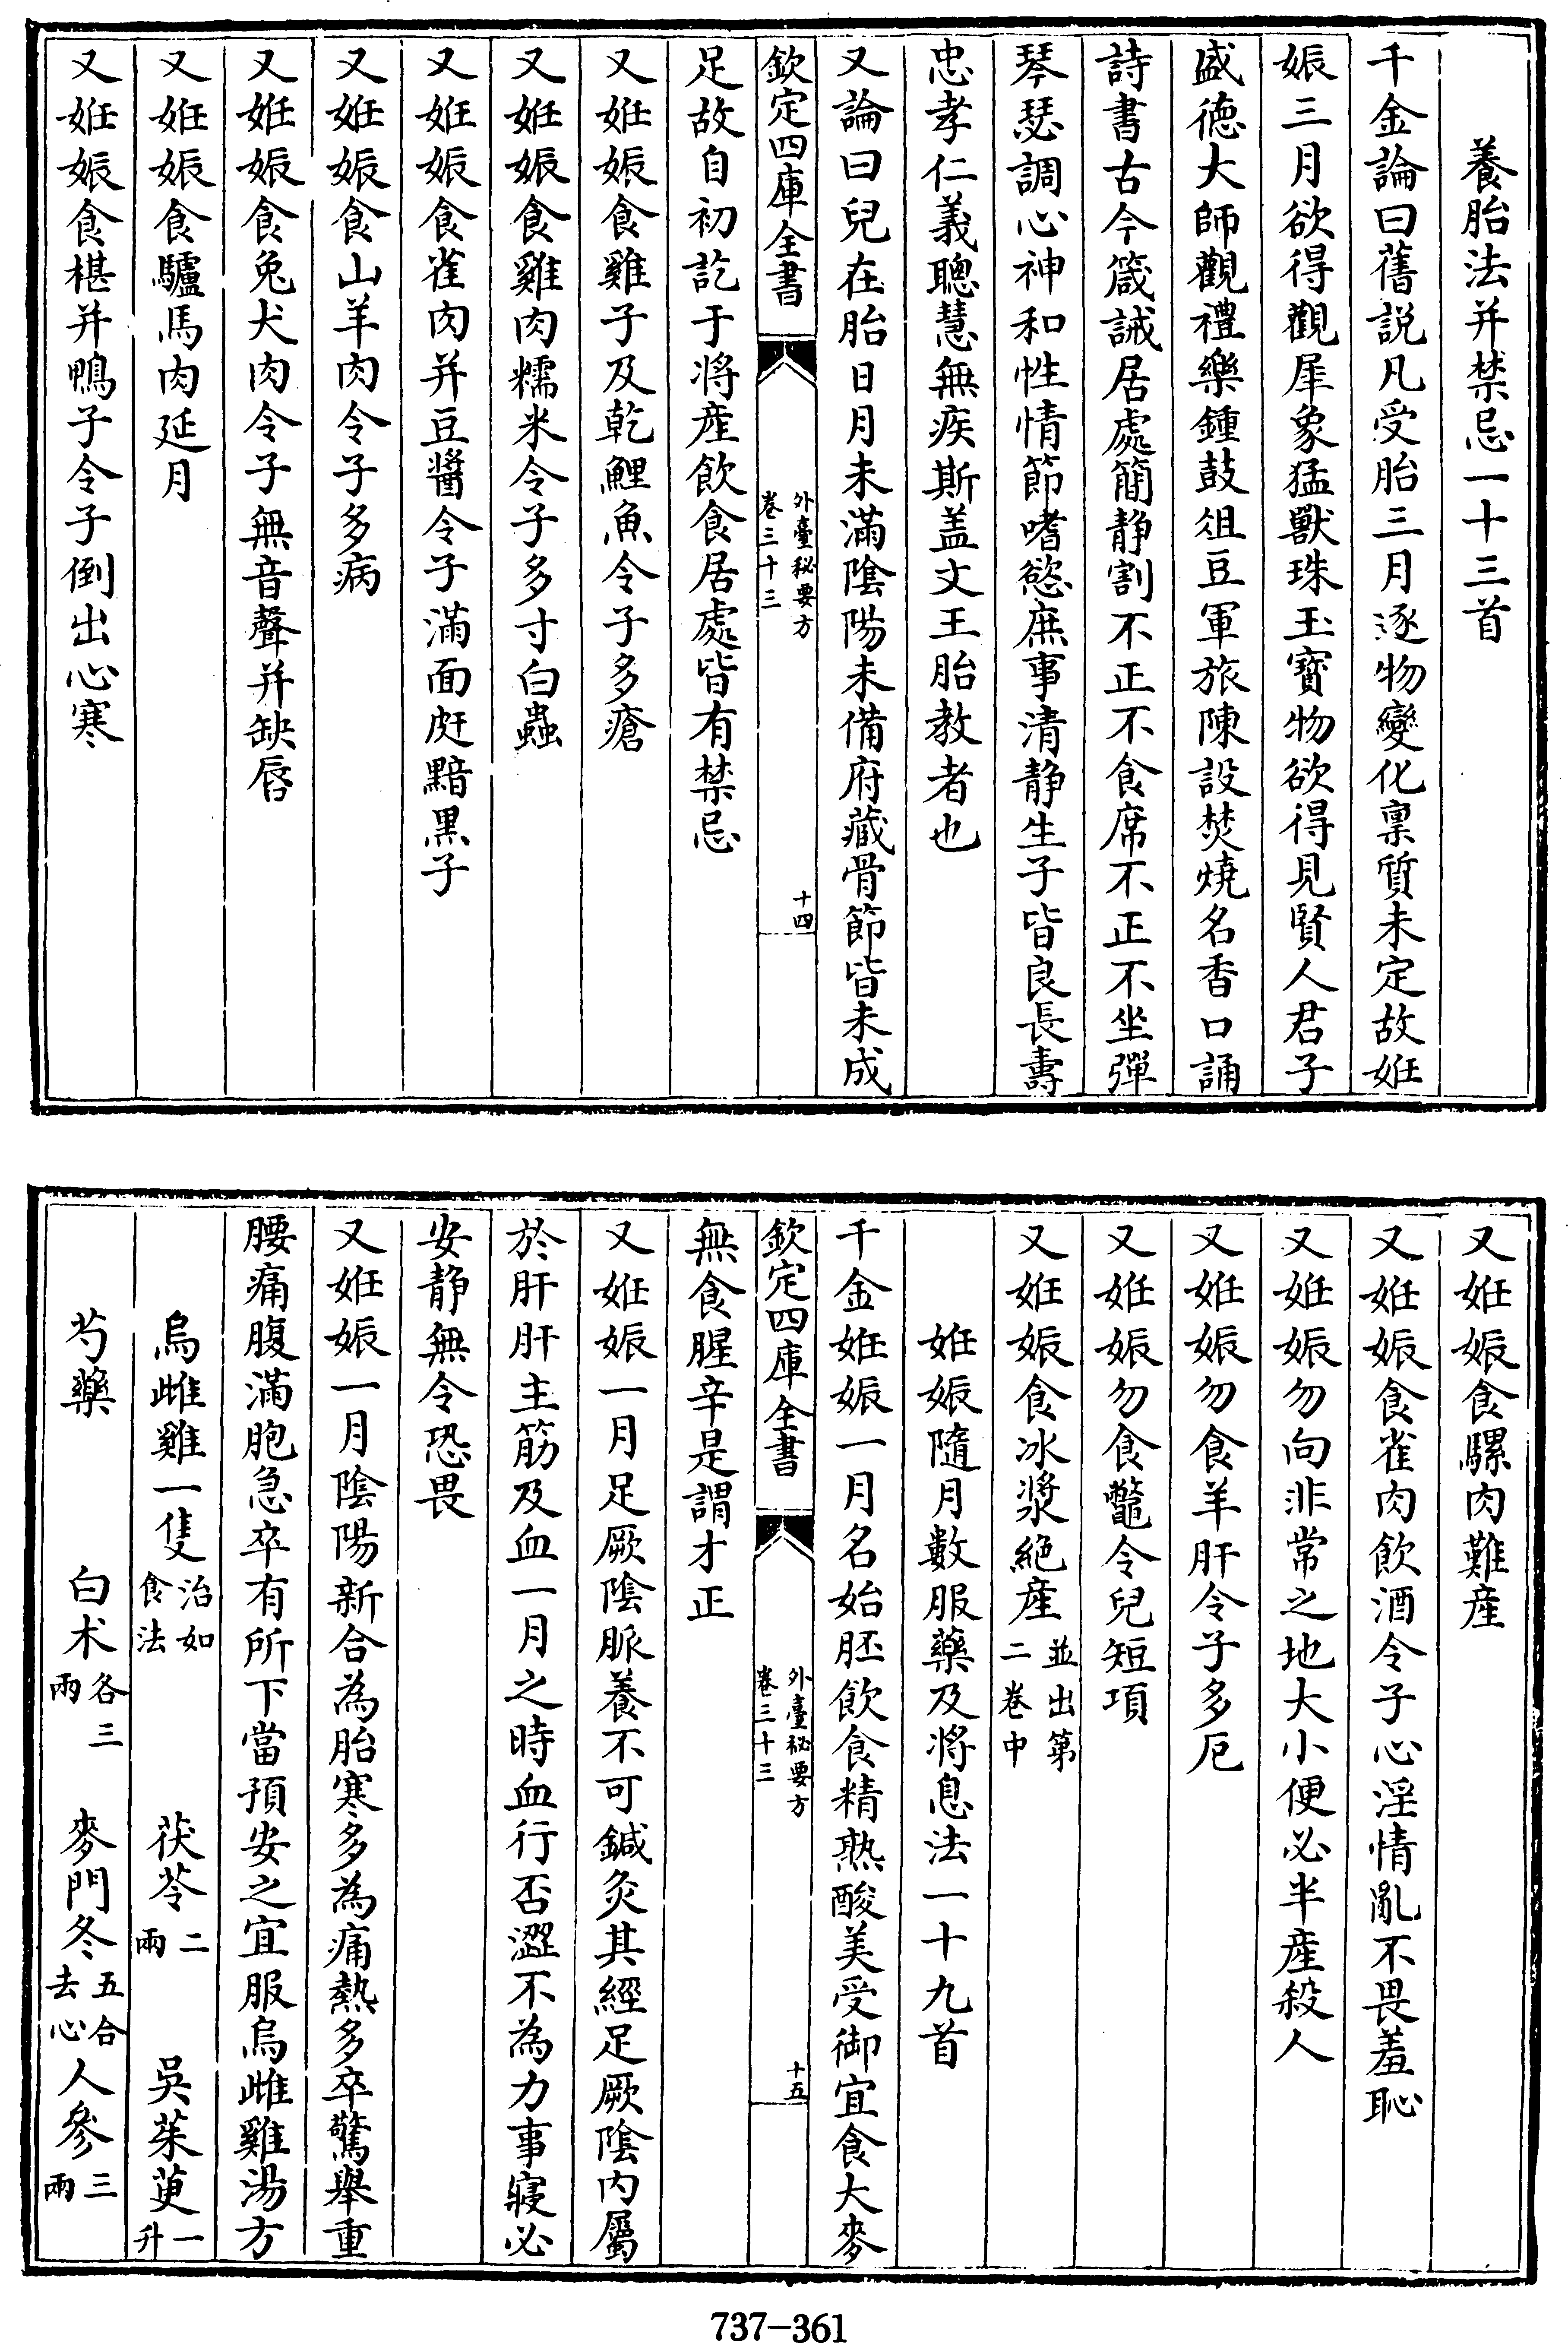 養胎法并禁忌一十三首
千金論曰舊説凡受胎三月逐物變化禀質未定故姙
娠三月欲得觀犀象猛獸珠玉寳物欲得見賢人君子
盛德大師觀禮樂鍾鼓俎豆軍旅陳設焚燒名香口誦
詩書古今箴誡居處簡静割不正不食席不正不坐彈
琴瑟調心神和性情節嗜慾庶事清静生子皆良長壽
忠孝仁義聰慧無疾斯盖文王胎教者也
又論曰兒在胎日月未滿隂陽未備府藏骨節皆未成
欽定四庫全書
外臺秘要方
卷三十三
十四
足故自初訖于將產飲食居處皆有禁忌
又姙娠食雞子及乾鯉魚令子多瘡
又姙娠食雞肉糯米令子多寸白蟲
又姙娠食雀肉并豆醬令子滿面皯黯黑子
又姙娠食山羊肉令子多病
又姙娠食兔犬肉令子無音聲并缺唇
又姙娠食驢馬肉延月
又姙娠食椹并鴨子令子倒出心寒
又姙娠食騾肉難産
又姙娠食雀肉飲酒令子心淫情亂不畏羞恥
又姙娠勿向非常之地大小便必半産殺人
又姙娠勿食羊肝令子多厄
又姙娠勿食鼈令兒短項
又姙娠食冰漿絶産並出第二卷中
姙娠隨月數服藥及將息法一十九首
千金姙娠一月名始胚飲食精熟酸美受御宜食大麥
欽定四庫全書
外臺秘要方
卷三十三
十五
無食腥辛是謂才正
又姙娠一月足厥隂脈養不可鍼灸其經足厥隂内屬
於肝肝主筋及血一月之時血行否澀不為力事寢必
安静無令恐畏
又姙娠一月隂陽新合為胎寒多為痛熱多卒驚舉重
腰痛腹滿胞急卒有所下當預安之宜服烏雌雞湯方
烏雌雞一隻治如食法 茯苓二兩 吳茱萸一升
芍藥 白术各三兩 麥門冬五合去心 人參三兩
737-361